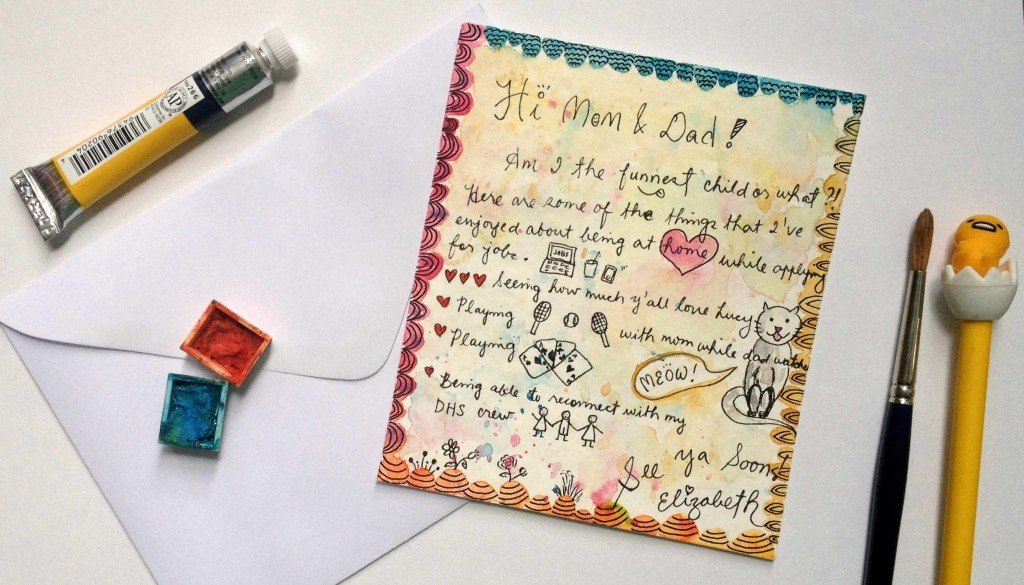 Hi Mom & Dad!
Am I the funnest child or what?!
Here are some of the things that I've
enjoyed about being at home while applying
for jobs. JOBS
Seeing how much y'all love Lucy
Playing with mom while dad watches
Playing
MEOW!
Being able to reconnect with my
DHS crew.
See ya Soon,
Elizabeth
AP